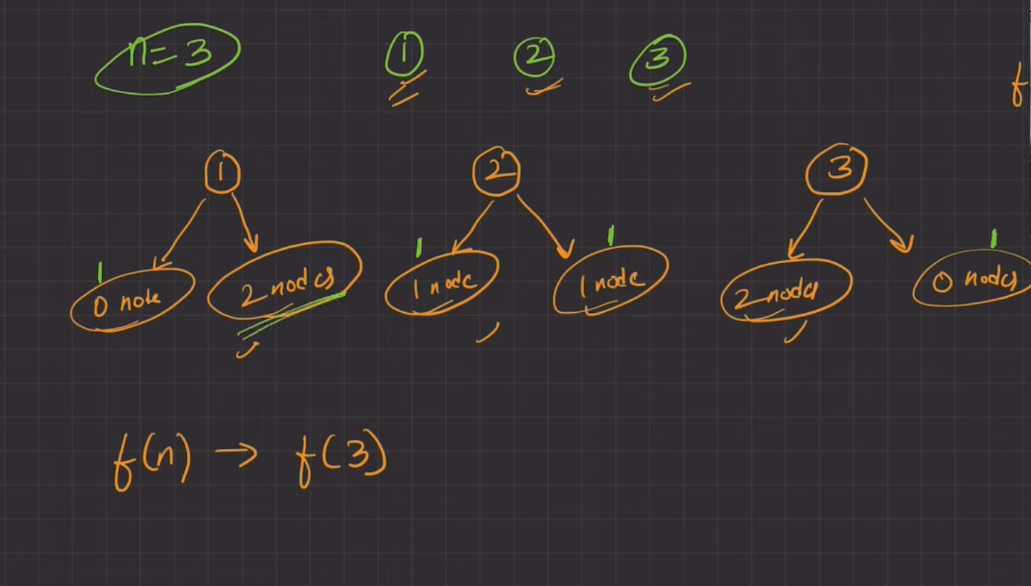 n=3 1 2 3
f
1 2 3
0 node 2 nodes 1 node 1 node 2 nodes 0 nodes
f(n) → f(3)